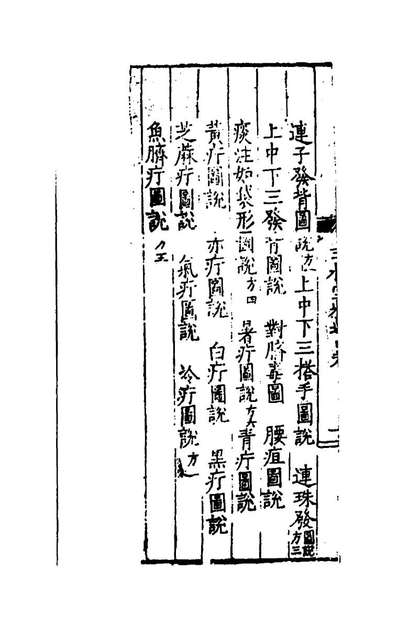 連子發背圖說方一 上中下三搭手圖說 連珠發圖說方三
上中下三發背圖說 對臍毒圖 腰疽圖說
痰注如袋形圖說方四 暑疔圖說 青疔圖說
黃疔圖說 赤疔圖說 白疔圖說 黑疔圖說
芝蔴疔圖說 氣疔圖說 冷疔圖說方一
魚臍疔圖說